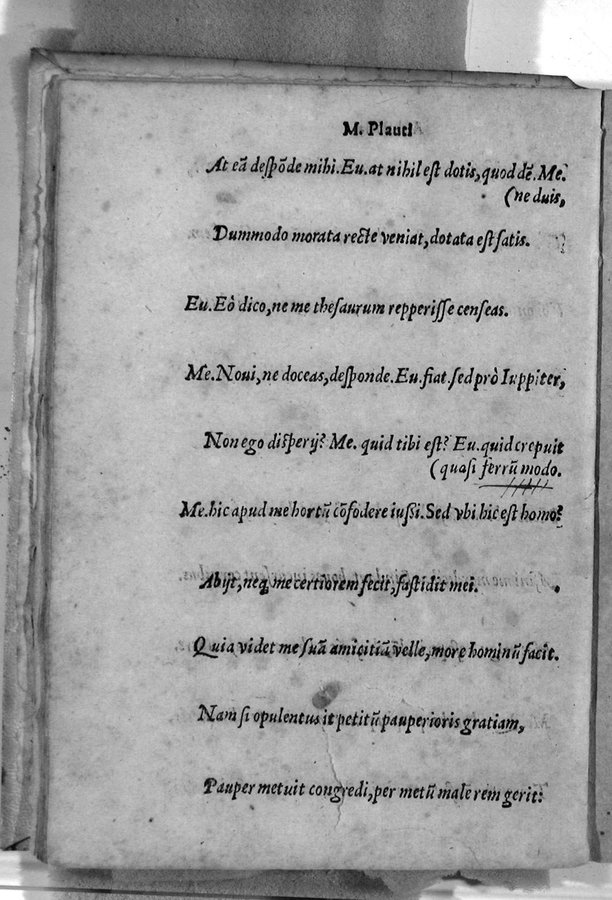 M. Plauti
At eã despõde mihi. Eu. at nihil est dotis, quod dẽ. Me.
(ne duis,
Dummodo morata recte veniat, dotata est satis.
Eu. Eò dico, ne me thesaurum repperisse censeas.
Me. Noui, ne doceas, desponde. Eu. fiat. sed prò Iuppiter,
Non ego disperij? Me. quid tibi est? Eu. quid crepuit
(quasi ferrũ modo.
Me. hic apud me hortũ cõfodere iussi. Sed vbi hic est homo?
Abijt, neq; me certiorem fecit, fastidit mei.
Quia videt me suã amicitiã velle, more hominũ facit.
Nam si opulentus it petitũ pauperioris gratiam,
Pauper metuit congredi, per metũ male rem gerit: